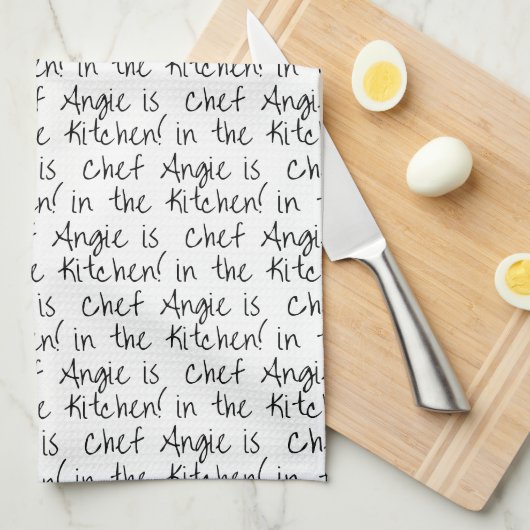 en! in the Kitchen! in
f Angie is Chef Angi
e Kitchen! in the Kitc
is Chef Angie is Ch
en! in the Kitchen! in
f Angie is Chef Angi
e Kitchen! in the Kitc
is Chef Angie is Che
en! in the Kitchen! in t
f Angie is Chef Angi
e Kitchen! in the Kitc
is Chef Angie is Ch
en! in the Kitchen! in